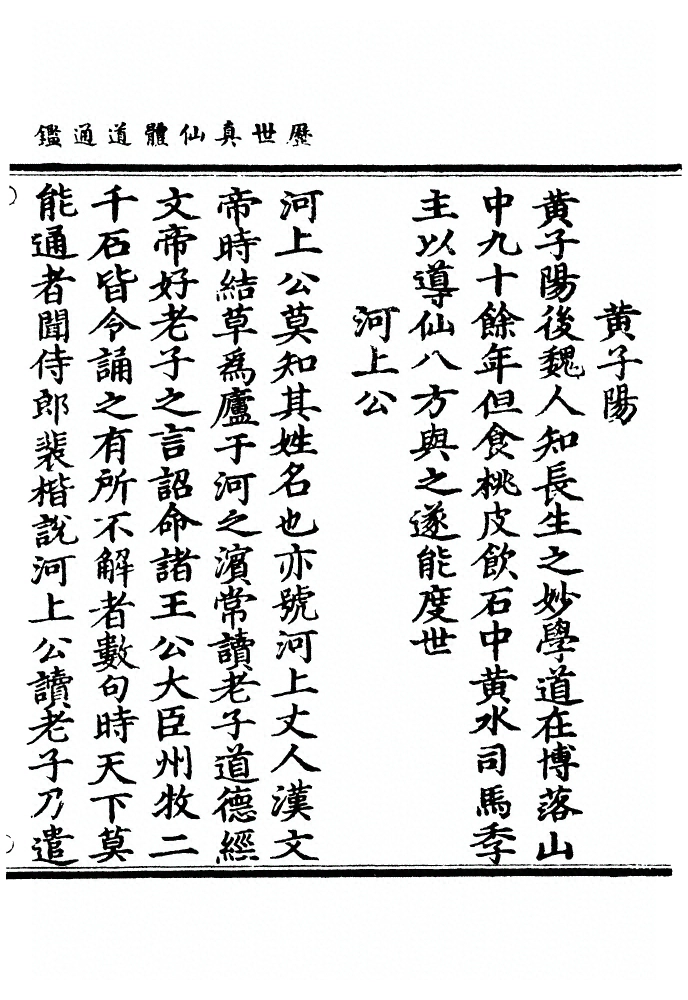 歷世真仙體道通鑑
黄子陽
黄子陽後魏人知長生之妙學道在博落山
中九十餘年但食桃皮飲石中黄水司馬季
主以導仙八方與之遂能度世
河上公
河上公莫知其姓名也亦號河上丈人漢文
帝時結草爲廬于河之濱常讀老子道德經
文帝好老子之言詔命諸王公大臣州牧二
千石皆令誦之有所不解者數句時天下莫
能通者聞侍郎裴楷說河上公讀老子乃遣